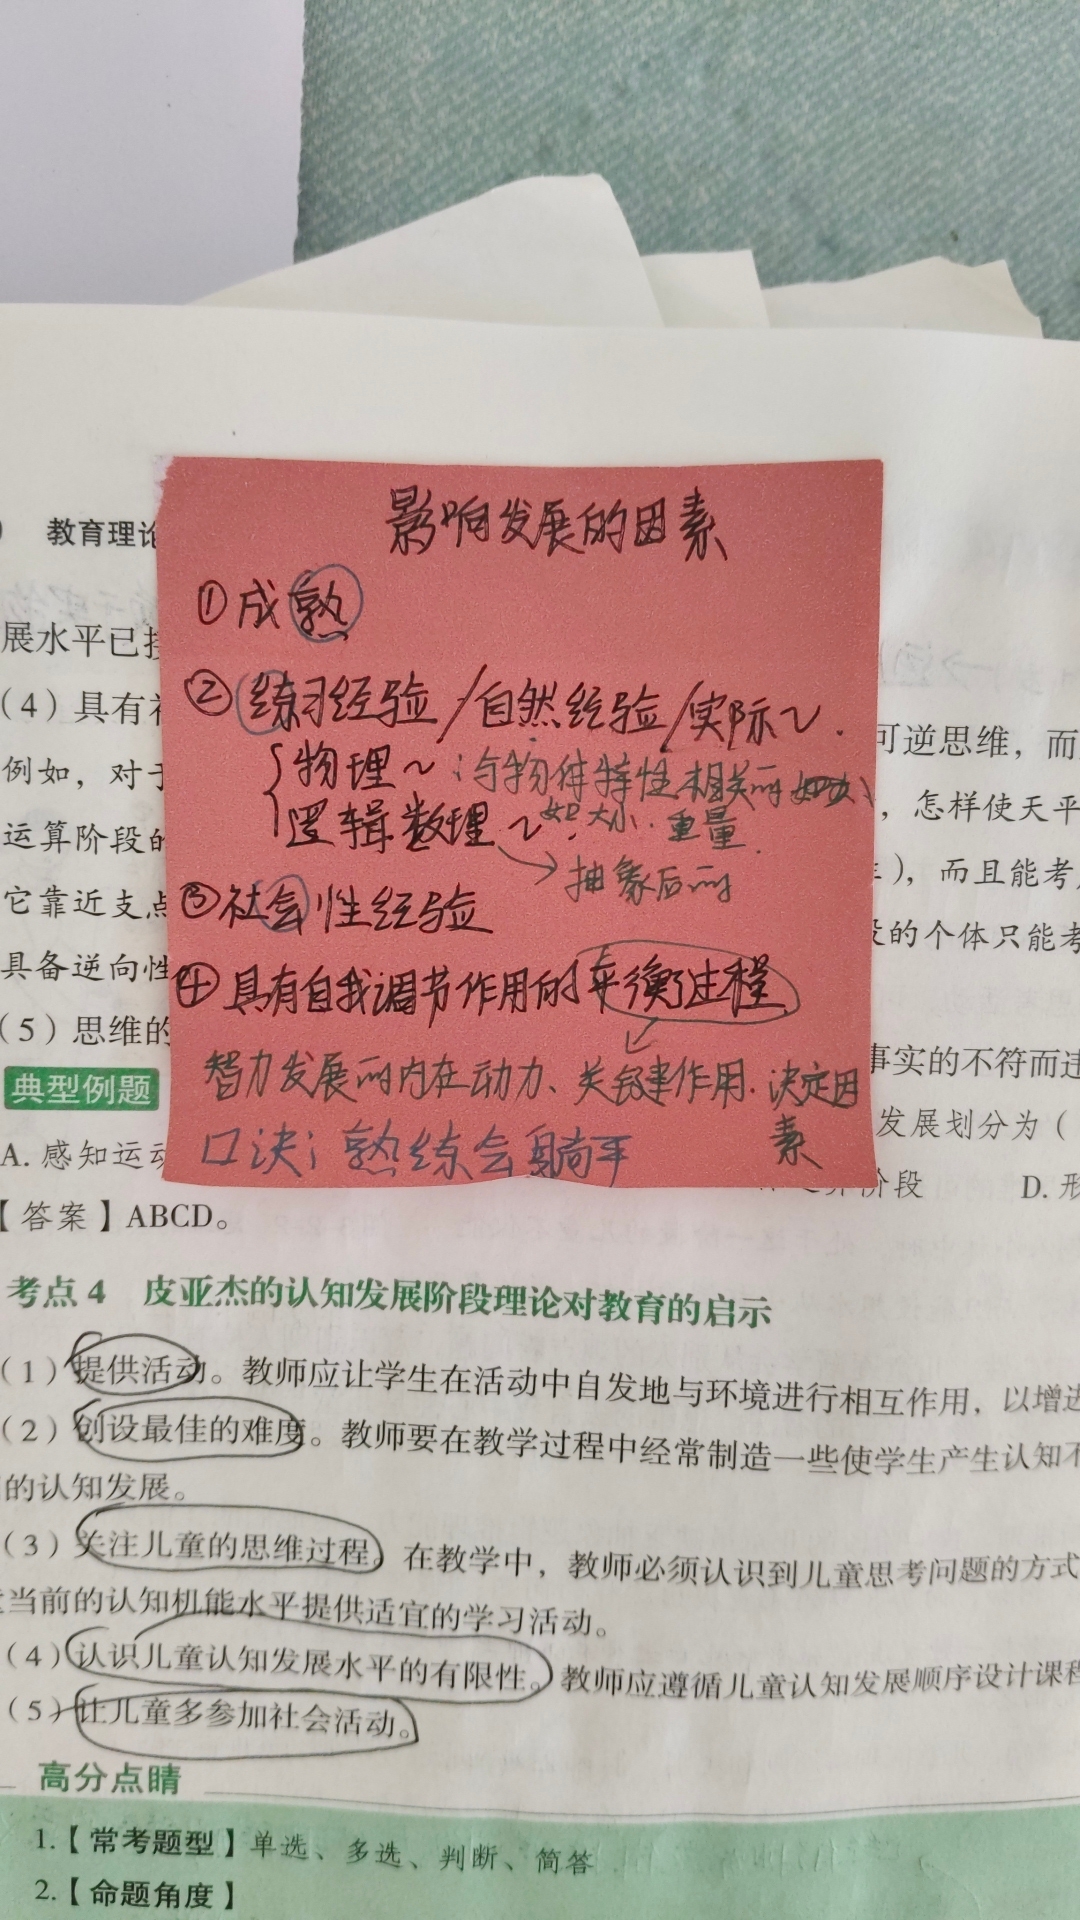 教育理论
影响发展的因素
①成熟
展水平已接
②练习经验/自然经验/实际~.
(4)具有
可逆思维，而
物理~：与物体特性相关的
例如，对于
如大小.重量.
，怎样使天平
逻辑数理~.
运算阶段的
抽象后的
)，而且能考
③社会性经验
它靠近支点
的个体只能考
④具有自我调节作用的平衡过程
具备逆向性
(5)思维的
事实的不符而违
智力发展的内在动力、关键作用.决定因素
典型例题
发展划分为(
口决：熟练会躺平
A.感知运动
阶段 D.形
【答案】ABCD。
考点4 皮亚杰的认知发展阶段理论对教育的启示
(1)提供活动。教师应让学生在活动中自发地与环境进行相互作用，以增进
(2)创设最佳的难度。教师要在教学过程中经常制造一些使学生产生认知不
的认知发展。
(3)关注儿童的思维过程。在教学中，教师必须认识到儿童思考问题的方式
当前的认知机能水平提供适宜的学习活动。
(4)认识儿童认知发展水平的有限性。教师应遵循儿童认知发展顺序设计课程
(5)让儿童多参加社会活动。
高分点睛
1.【常考题型】单选、多选、判断、简答
2.【命题角度】